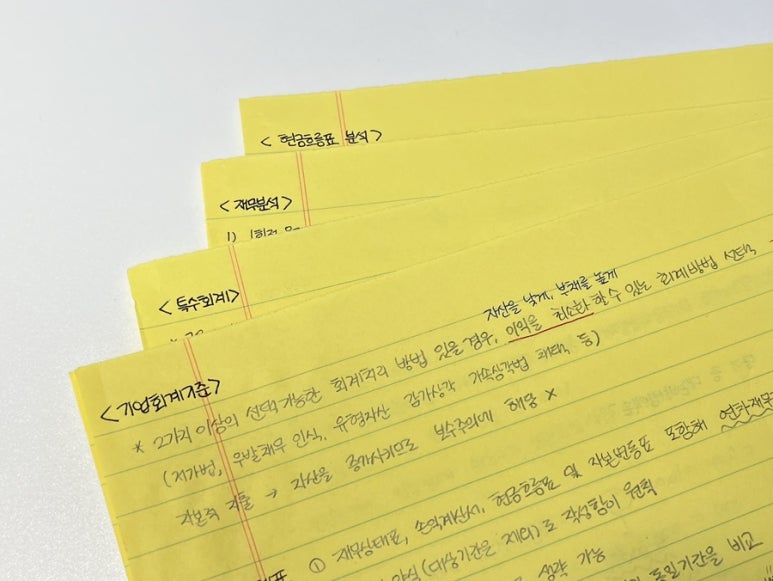 < 현금흐름표 분석 >
< 재무분석 >
1)
< 특수회계 >
< 기업회계기준 >
자산을 낮게, 부채를 높게
* 2가지 이상의 선택 가능한 회계처리 방법 있을 경우, 이익을 최소화 할 수 있는 회계방법 선택
(저가법, 우발채무 인식, 유형자산 감가상각 가속상각법 채택 등)
자본적 지출 → 자산을 증가시키므로 보수주의에 해당 X
① 재무상태표, 손익계산서, 현금흐름표 및 자본변동표 포함해 연차재무
양식 (대상기간은 제외)로 작성함이 원칙
생략 가능
동일기간을 비교